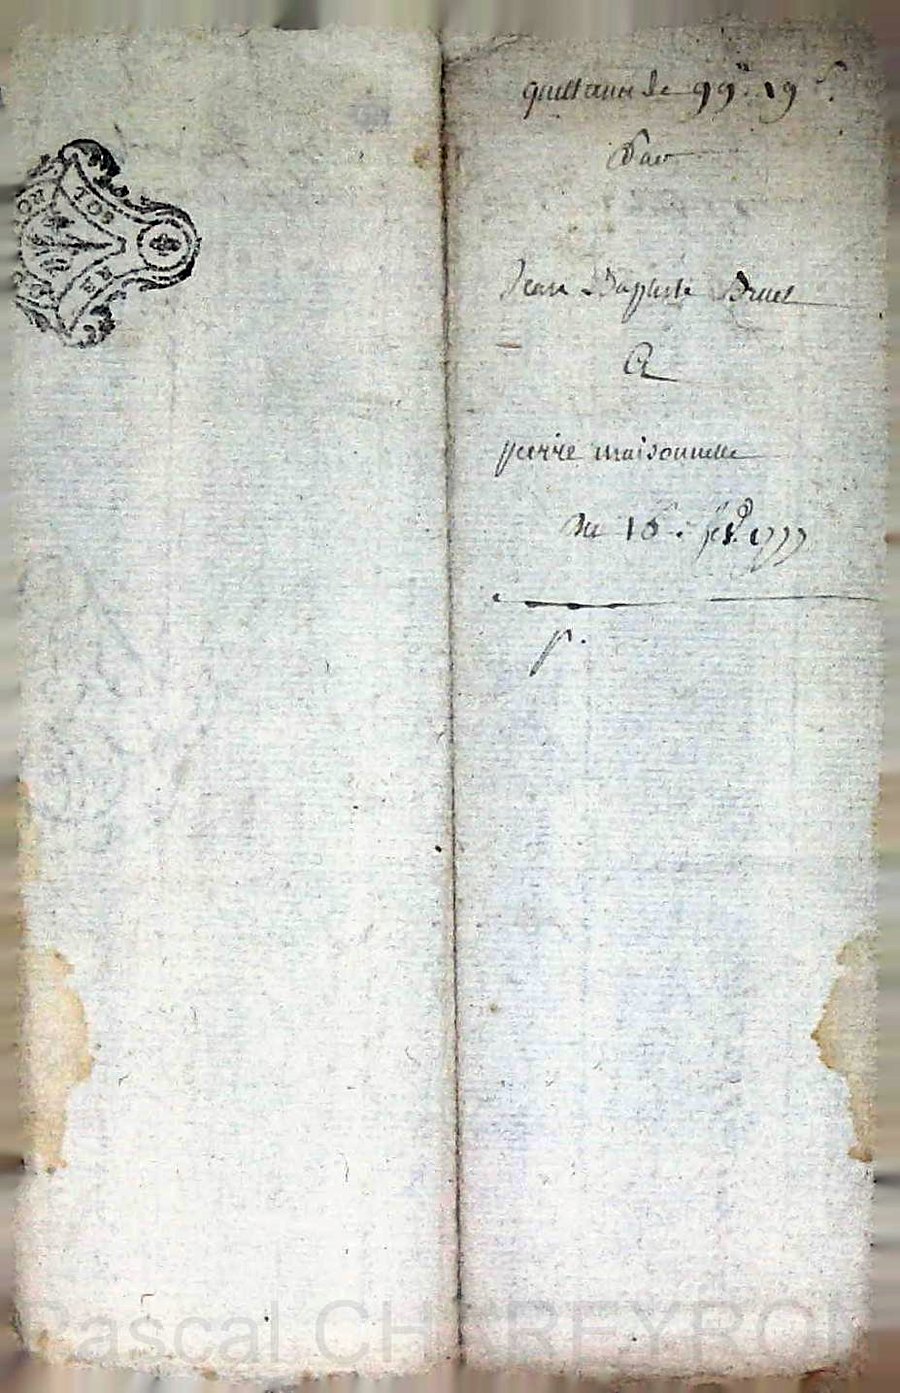 quittance de 99# 19 s.
Par
Jean Baptiste Bruet
A
pierre maisonnelle
Du 16e. fev. 1777
p.
Pascal CHAREYRON